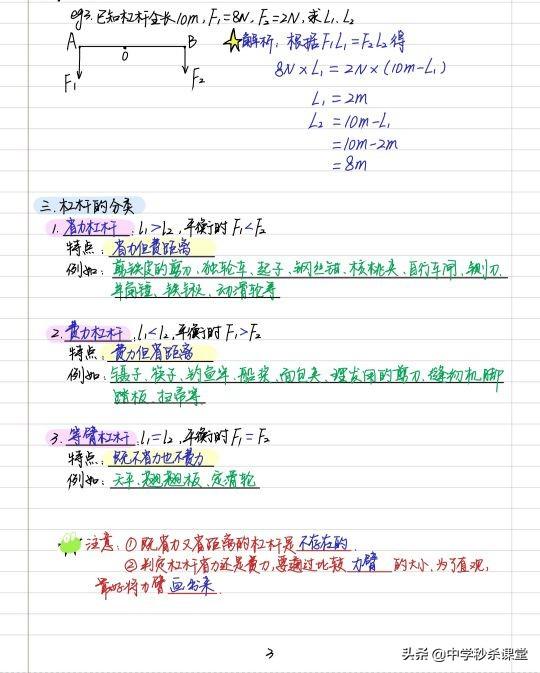 eg3. 已知杠杆全长10m, F₁=8N, F₂=2N, 求L₁、L₂
A B
O
F₁ F₂
解析: 根据F₁L₁=F₂L₂得
8N×L₁=2N×(10m-L₁)
L₁=2m
L₂=10m-L₁
=10m-2m
=8m
三.杠杆的分类
1. 省力杠杆: L₁>L₂, 平衡时F₁<F₂
特点: 省力但费距离
例如: 剪铁皮的剪刀、独轮车、起子、钢丝钳、核桃夹、自行车闸、铡刀、
羊角锤、铁锹、动滑轮等
2. 费力杠杆: L₁<L₂, 平衡时F₁>F₂
特点: 费力但省距离
例如: 镊子、筷子、钓鱼竿、船桨、面包夹、理发用的剪刀、缝纫机脚
踏板、扫帚等
3. 等臂杠杆: L₁=L₂, 平衡时F₁=F₂
特点: 既不省力也不费力
例如: 天平、翘翘板、定滑轮
注意: ①既省力又省距离的杠杆是不存在的.
②判定杠杆省力还是费力,要通过比较 力臂 的大小.为了直观,
最好将力臂画出来.
3
头条@中学秒杀课堂